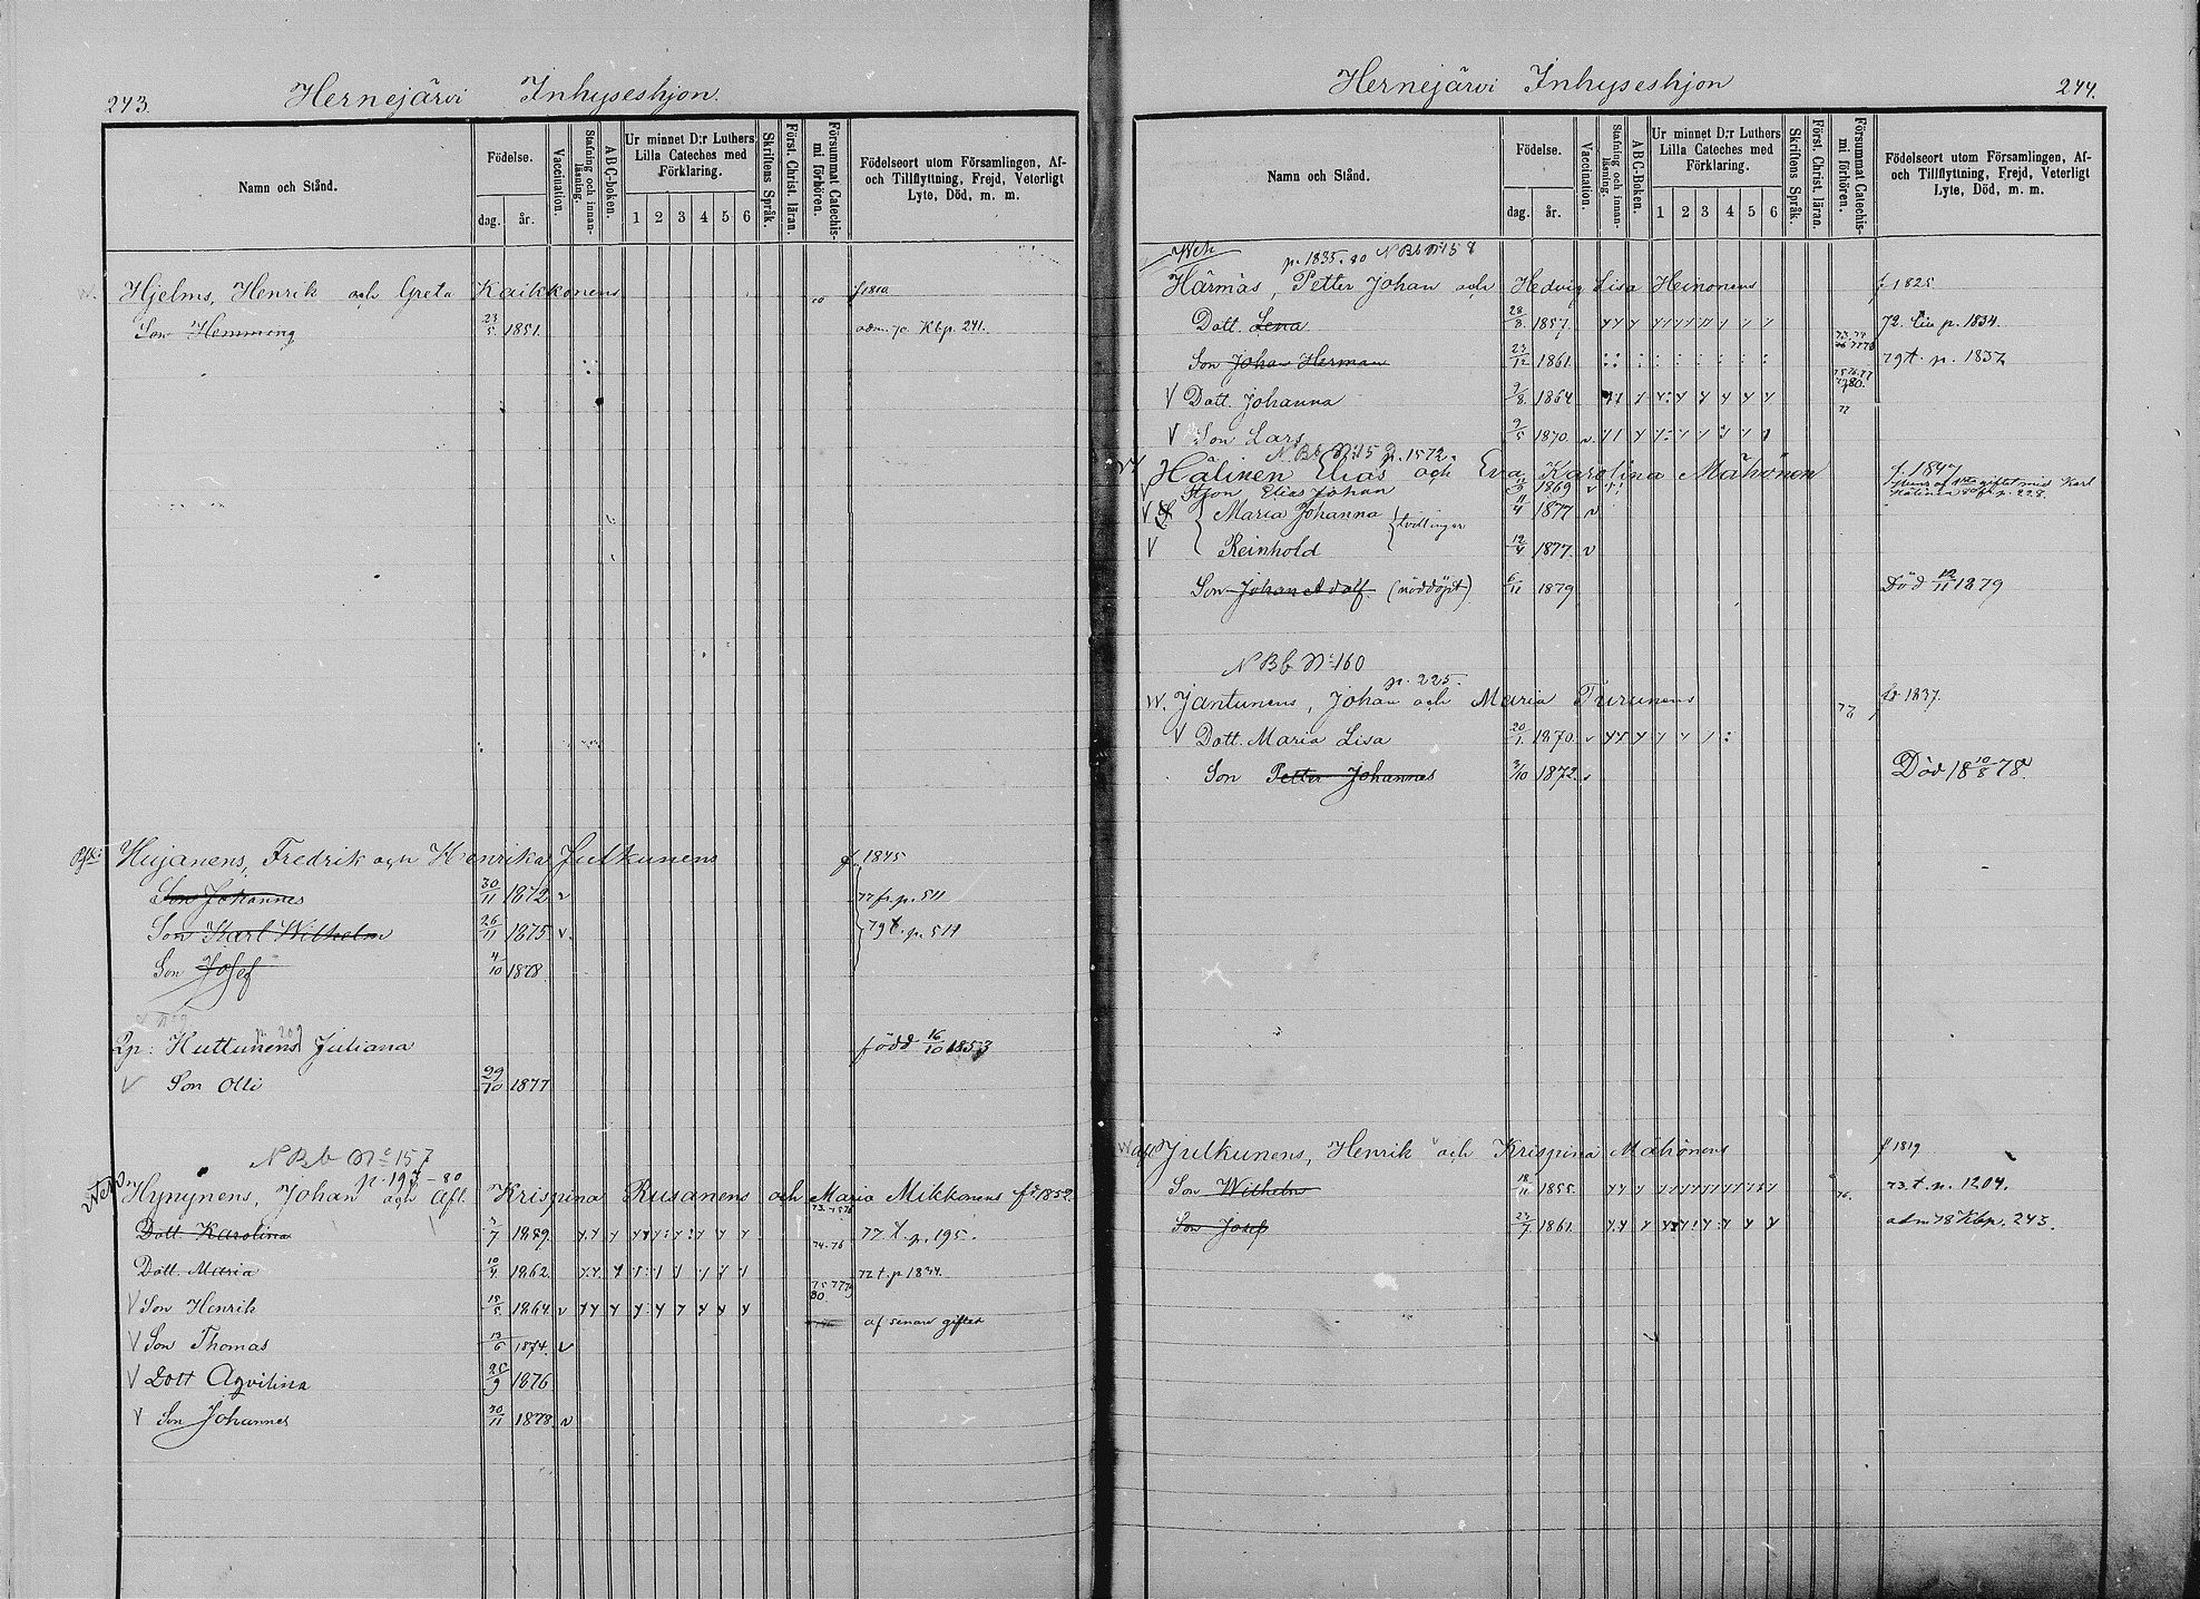 243.
Hernejärvi Inhyseshjon.
Namn och Stånd.
Födelse.
dag. år.
Vaccination.
Stafning och innan-läsning.
ABC-boken.
Ur minnet D:r Luthers Lilla Cateches med Förklaring.
1 2 3 4 5 6
Skriftens Språk.
Först. Christ. läran.
Försummat Catechis-mi förhören.
Födelseort utom Församlingen, Af- och Tillflyttning, Frejd, Veterligt Lyte, Död, m. m.
Hjelms, Henrik och Greta Kaikkonens f 1810
Son Hemming 23/5 1851. adm. 70 Kbp. 241.
Hujanens, Fredrik och Henrika Julkunens f 1845
Son Johannes 30/11 1872 v 77 fr. p. 511
Son Karl Wilhelm 26/11 1875 v. 79 t. p. 511
Son Josef 4/10 1878
p. 209
Huttunens Juliana född 16/10 1853
V Son Olli 29/10 1877
N Bb No 157
Hypynens, Johan och Afl. Krispina Rusanens och Maria Mikkonens f. 1852.
Dott. Karolina 77 t. p. 195.
Dott. Maria 10/4 1862. 72 t. p 1844.
V Son Henrik 15/5 1864. v
af senare giftet
V Son Thomas 13/6 1874. v
V Dott Aqvilina 25/9 1876
V Son Johannes 30/11 1878. v
Hernejärvi Inhyseshjon
244.
Namn och Stånd.
Födelse.
dag. år.
Vaccination.
Stafning och innan-läsning.
ABC-Boken.
Ur minnet D:r Luthers Lilla Cateches med Förklaring.
1 2 3 4 5 6
Skriftens Språk.
Först. Christ. läran.
Försummat Catechis-mi förhören.
Födelseort utom Församlingen, Af- och Tillflyttning, Frejd, Veterligt Lyte, Död, m. m.
p. 1835. 80 N Bb No 158
Härmäs, Petter Johan och Hedvig Lisa Heinonens f 1825
Dott. Lena 28/8 1857. 72. p. 1834.
Son Johan Herman 23/12 1861. 79 t. p. 1837
V Dott. Johanna 9/8 1864
V Son Lars 9/5 1870. v.
p. 1572.
Hälinen Elias och Eva Karolina Mähönen f. 1847
V Son Elias Johan 1869 v
V Maria Johanna tvillingar 11/4 1877 v
V Reinhold 12/4 1877. v
Son Johan Adolf (nöddöpt) 6/11 1879 Död 12/11 1879
N Bb No 160
p. 225.
W. Jantunens, Johan och Maria Turunens f. 1837.
V Dott. Maria Lisa 20/1. 1870. v
Son Petter Johannes 3/10 1872. Död 18 10/8 78.
Julkunens, Henrik och Krispina Mähönens f 1819
Son Wilhelm 18/11 1855. 73. t. p. 1204.
Son Josef 23/7 1861. adm 78 Kbp. 243.